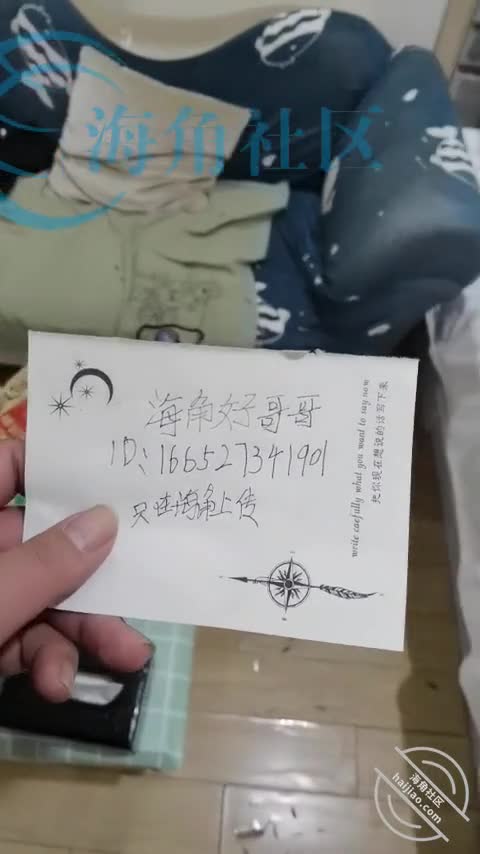 海角社区
海角好哥哥
ID:166527341901
只在海角上传
write carefully what you want to say now
把你现在想说的话写下来
海角社区
haijiao.com